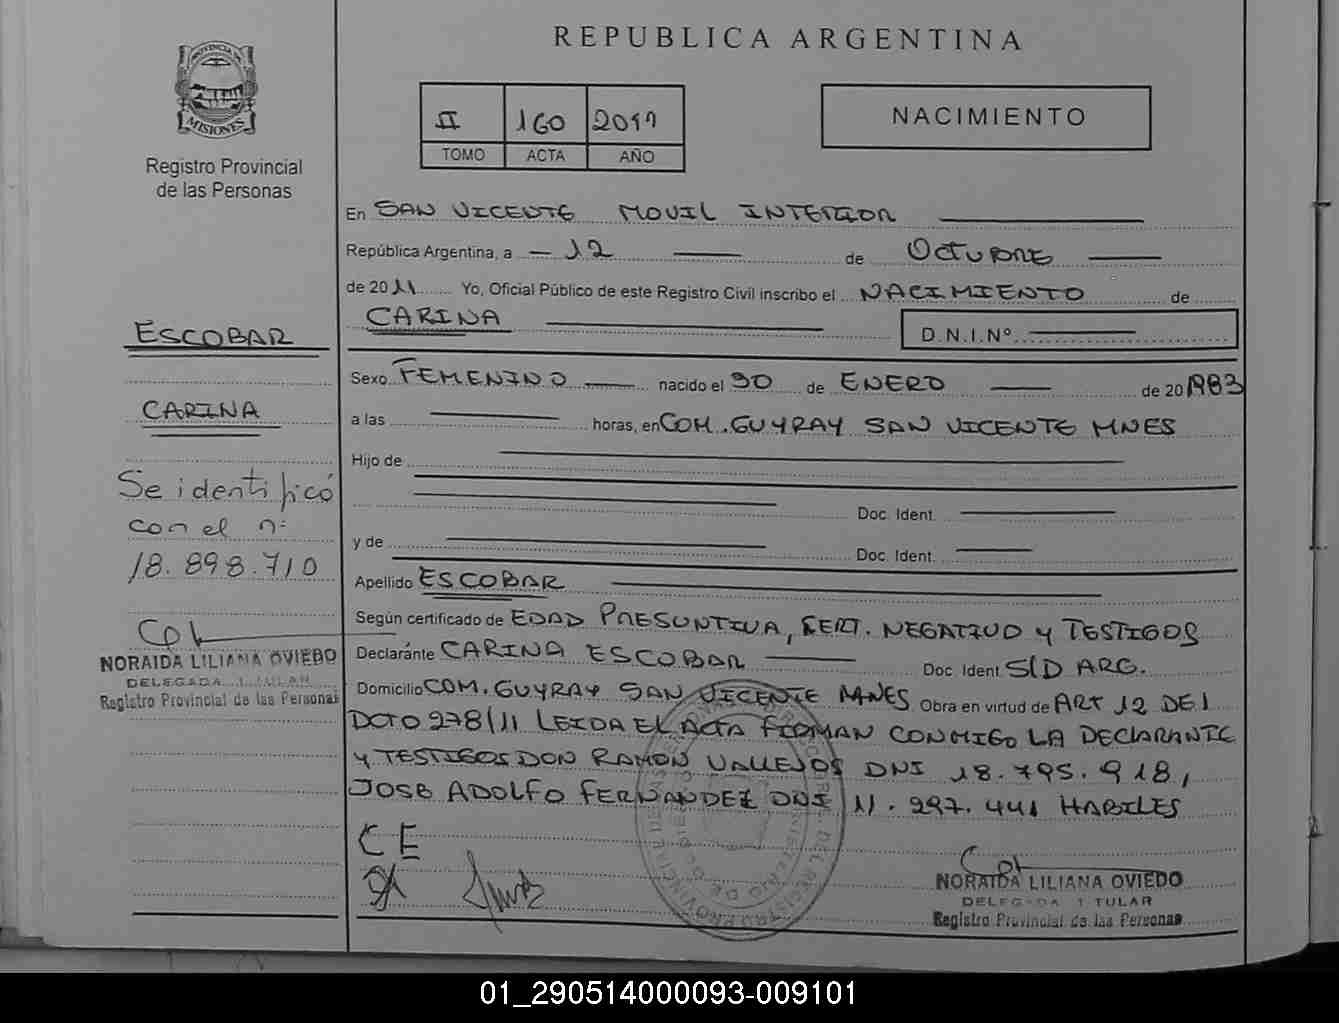 REPUBLICA ARGENTINA
PROVINCIA DE
MISIONES
Registro Provincial
de las Personas
II 160 2011
TOMO ACTA AÑO
NACIMIENTO
En SAN VICENTE MOVIL INTERIOR
República Argentina, a 12 de OCTUBRE
de 2011 Yo, Oficial Público de este Registro Civil inscribo el NACIMIENTO de
CARINA D.N.I.Nº
Sexo FEMENINO nacido el 30 de ENERO de 201983
a las horas, en COM. GUYRAY SAN VICENTE MNES
Hijo de
Doc. Ident.
y de Doc. Ident.
Apellido ESCOBAR
Según certificado de EDAD PRESUNTIVA, CERT. NEGATIVO Y TESTIGOS
Declarante CARINA ESCOBAR Doc. Ident. S/D ARG.
Domicilio COM. GUYRAY SAN VICENTE MNES Obra en virtud de ART 12 DEL
DCTO 278/11 LEIDA EL ACTA FIRMAN CONMIGO LA DECLARANTE
Y TESTIGOS DON RAMON VALLEJOS DNI 18.795.918,
JOSE ADOLFO FERNANDEZ DNI 11.297.441 HABILES
CE
NORAIDA LILIANA OVIEDO
DELEGADA TITULAR
Registro Provincial de las Personas
ESCOBAR
CARINA
Se identificó
con el nº
18.898.710
NORAIDA LILIANA OVIEDO
DELEGADA TITULAR
Registro Provincial de las Personas
01_290514000093-009101